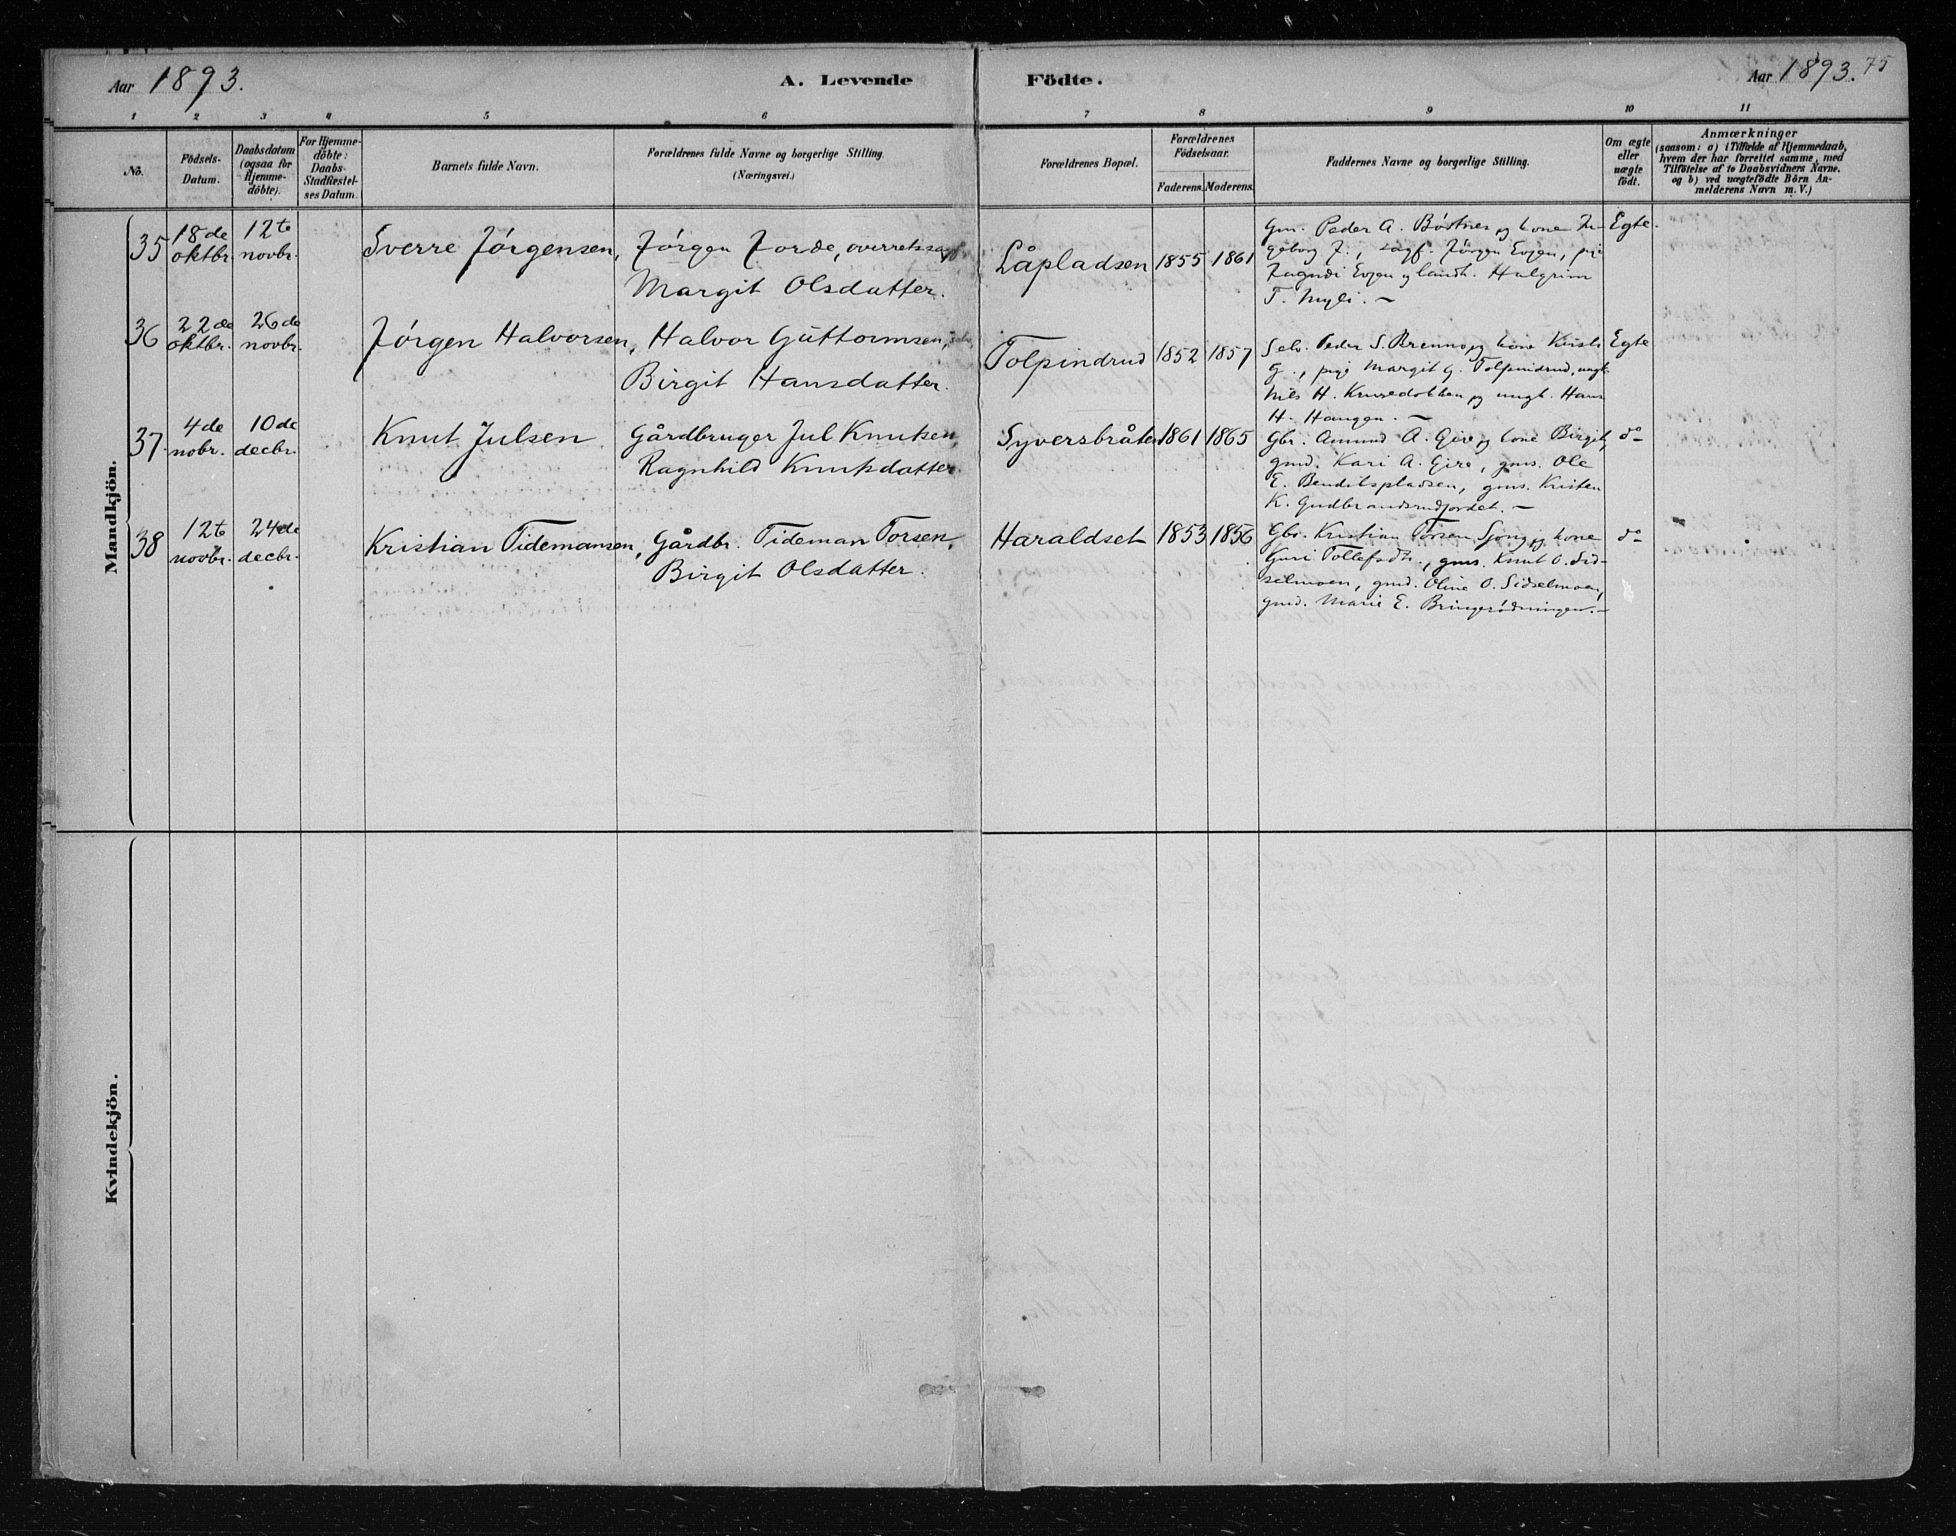 Aar 1893.
A. Levende Födte.
Aar 1893. 75
1 2 3 4 5 6 7 8 9 10 11
No.
Födsels-
Datum.
Daabsdatum
(ogsaa for
Hjemme-
döbte).
For Hjemme-
döbte:
Daabs-
Stadfæstel-
ses Datum.
Barnets fulde Navn.
Forældrenes fulde Navne og borgerlige Stilling.
(Næringsvei.)
Forældrenes Bopæl.
Forældrenes
Födselsaar.
Faderens. Moderens.
Faddernes Navne og borgerlige Stilling.
Om ægte
eller
uægte
födt.
Anmærkninger
(saasom: a) i Tilfælde af Hjemmedaab,
hvem der har forrettet samme, med
Tilföielse af to Daabsvidners Navne.
og b) ved uægtefödte Börn An-
melderens Navn m. V.)
Mandkjön.
35
18de
oktbr.
12te
novbr.
Sverre Jörgensen,
Jörgen Jorde, overretssagf.
Margit Olsdatter.
Låpladsen
1855
1861
Gm. Peder A. Böstnes og kone In-
geborg J., sagf. Jörgen Evjen, pige
Evjen og landh. Halgrim
T. Myli. —
Egte.
36
22de
oktbr.
26de
novbr.
Jörgen Halvorsen,
Halvor Guttormsen,
Birgit Hansdatter.
Tolpindrud
1852
1857
Selv. Peder S. Brenno og kone Kristi
G., pige Margit G. Tolpindrud, ungk.
Nils H. Krusedokken og ungk. Hans
H. Haugen. —
Egte
37
4de
nobr.
10de
decbr.
Knut Julsen
Gårdbruger Jul Knutsen,
Ragnhild Knutsdatter
Syversbråten
1861
1865
Gbr. Amund A. Gire og kone Birgit,
gmd. Kari A. Gire, gms. Ole
E. Bendikspladsen, gms. Kristen
K. Gudbrandsrudjordet. —
do
38
12te
novbr.
24de
decbr.
Kristian Tidemansen,
Gårdbr. Tideman Torsen,
Birgit Olsdatter.
Haraldset
1853
1856
Gbr. Kristian Torsen Sjong og kone
Guri Tollefsdt., gms. Knut O. Sid-
selmoen, gmd. Oline O. Sidselmoen,
gmd. Marie E. Bringerödningen. —
do
Kvindekjön.